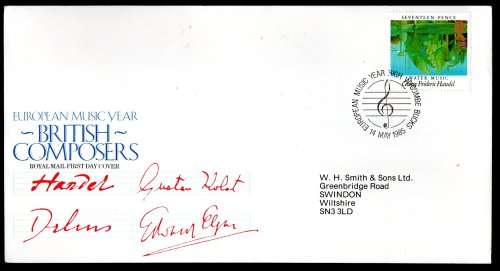 SEVENTEEN·PENCE
WATER MUSIC
George Frideric Handel
EUROPEAN MUSIC YEAR HIGH WYCOMBE BUCKS
14 MAY 1985
EUROPEAN MUSIC YEAR
~BRITISH~
COMPOSERS
ROYAL MAIL FIRST DAY COVER
Handel Gustav Holst
Delius Edward Elgar
W. H. Smith & Sons Ltd.
Greenbridge Road
SWINDON
Wiltshire
SN3 3LD